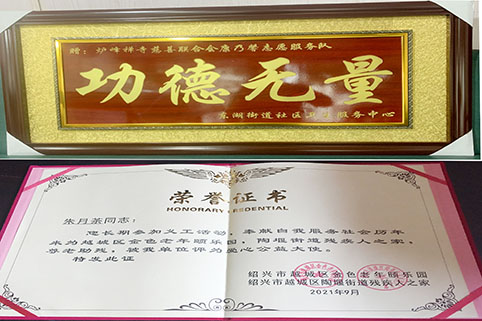 赠：炉峰禅寺慈善联合会康乃馨志愿服务队
功德无量
东湖街道社区卫生服务中心
荣誉证书
HONORARY CREDENTIAL
朱月英同志：
您长期参加义工活动，奉献自我服务社会历年
来为越城区金色老年颐乐园，陶堰街道残疾人之家，
尊老助残，被我单位评为爱心公益大使。
特发此证
绍兴市越城区金色老年颐乐园
绍兴市越城区陶堰街道残疾人之家
2021年9月